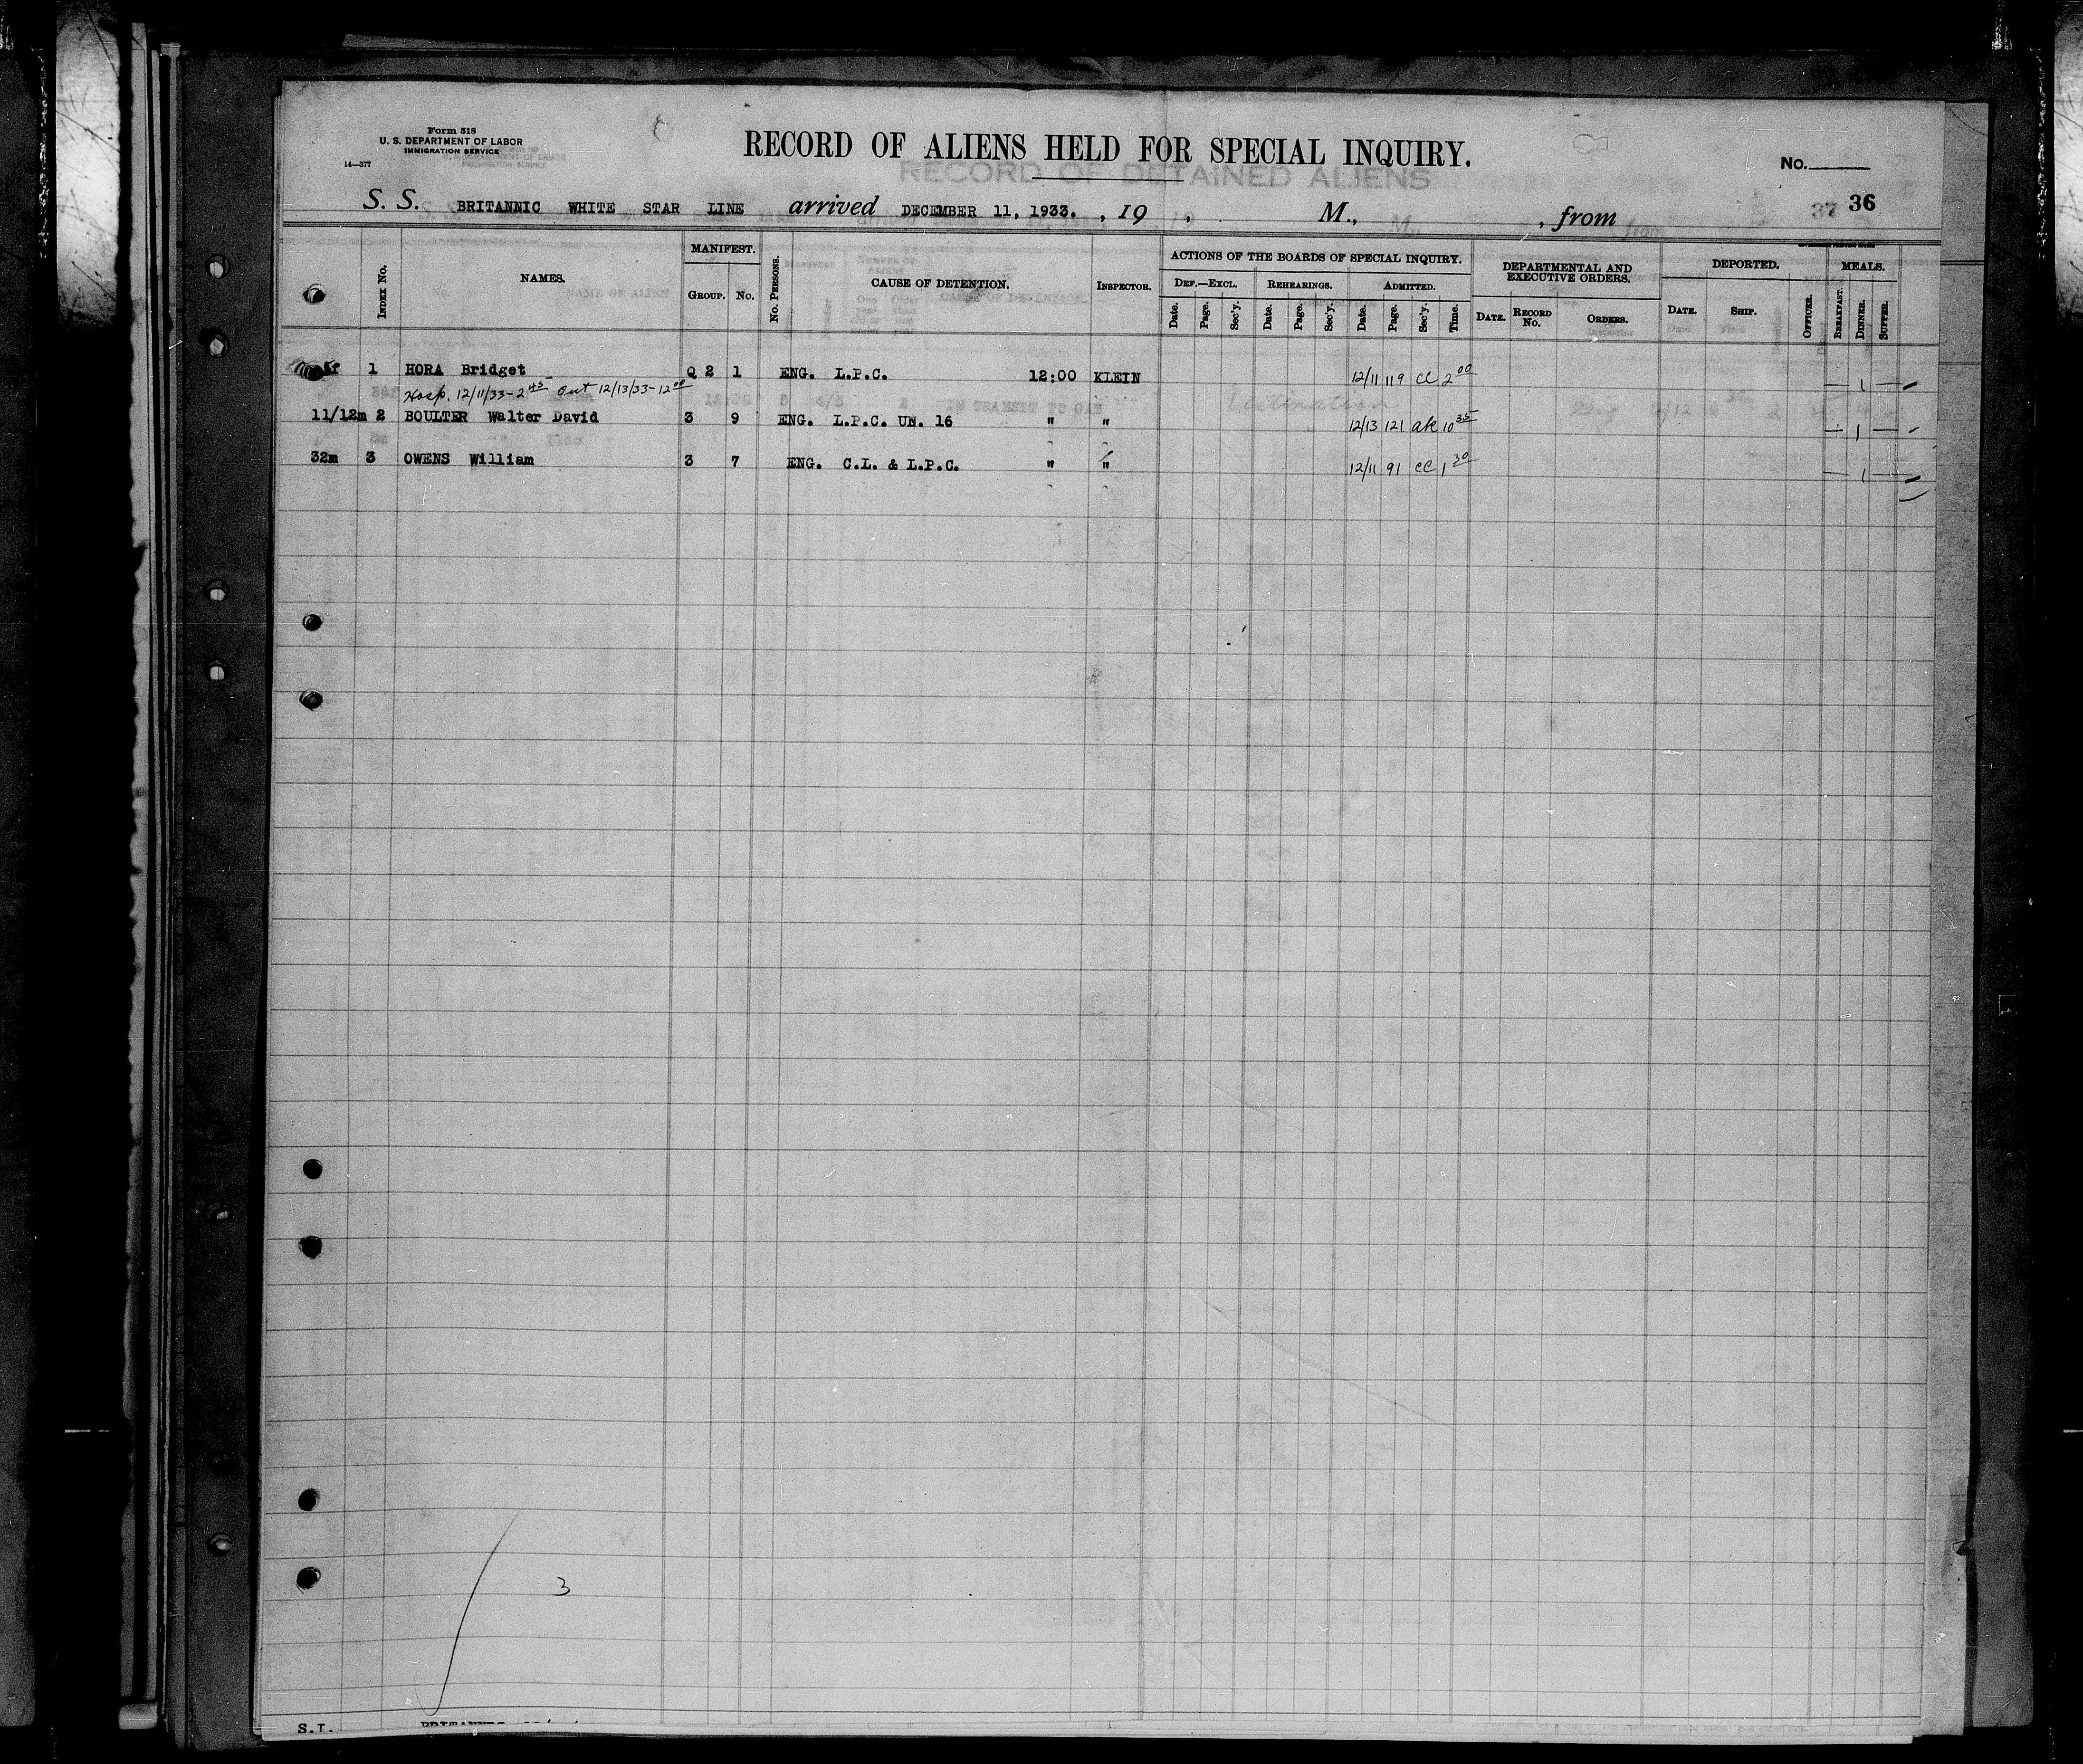 Form 518
U. S. DEPARTMENT OF LABOR
IMMIGRATION SERVICE
14—377
RECORD OF ALIENS HELD FOR SPECIAL INQUIRY.
RECORD OF DETAINED ALIENS
No.
S. S. BRITANNIC WHITE STAR LINE arrived DECEMBER 11, 1933. , 19 , M., , from
37 36
Index No. NAMES. MANIFEST. Group. No. No. Persons. CAUSE OF DETENTION. Inspector. ACTIONS OF THE BOARDS OF SPECIAL INQUIRY. DEPARTMENTAL AND EXECUTIVE ORDERS. DEPORTED. MEALS.
Def.—Excl. Rehearings. Admitted.
Date. Page. Sec'y. Date. Page. Sec'y. Date. Page. Sec'y. Time. Date. Record No. Orders. Date. Ship. Officer. Breakfast. Dinner. Supper.
f 1 HORA Bridget Q 2 1 ENG. L.P.C. 12:00 KLEIN 12/11 119 CC 2 00 — 1 —
Hosp. 12/11/33-2 45 Out 12/13/33-12 00
11/12m 2 BOULTER Walter David 3 9 ENG. L.P.C. UN. 16 " " 12/13 121 ak 10 35 — 1 —
32m 3 OWENS William 3 7 ENG. C.L. & L.P.C. " " 12/11 91 CC 1 30 — 1 —
3
S.I. BRITANNIC